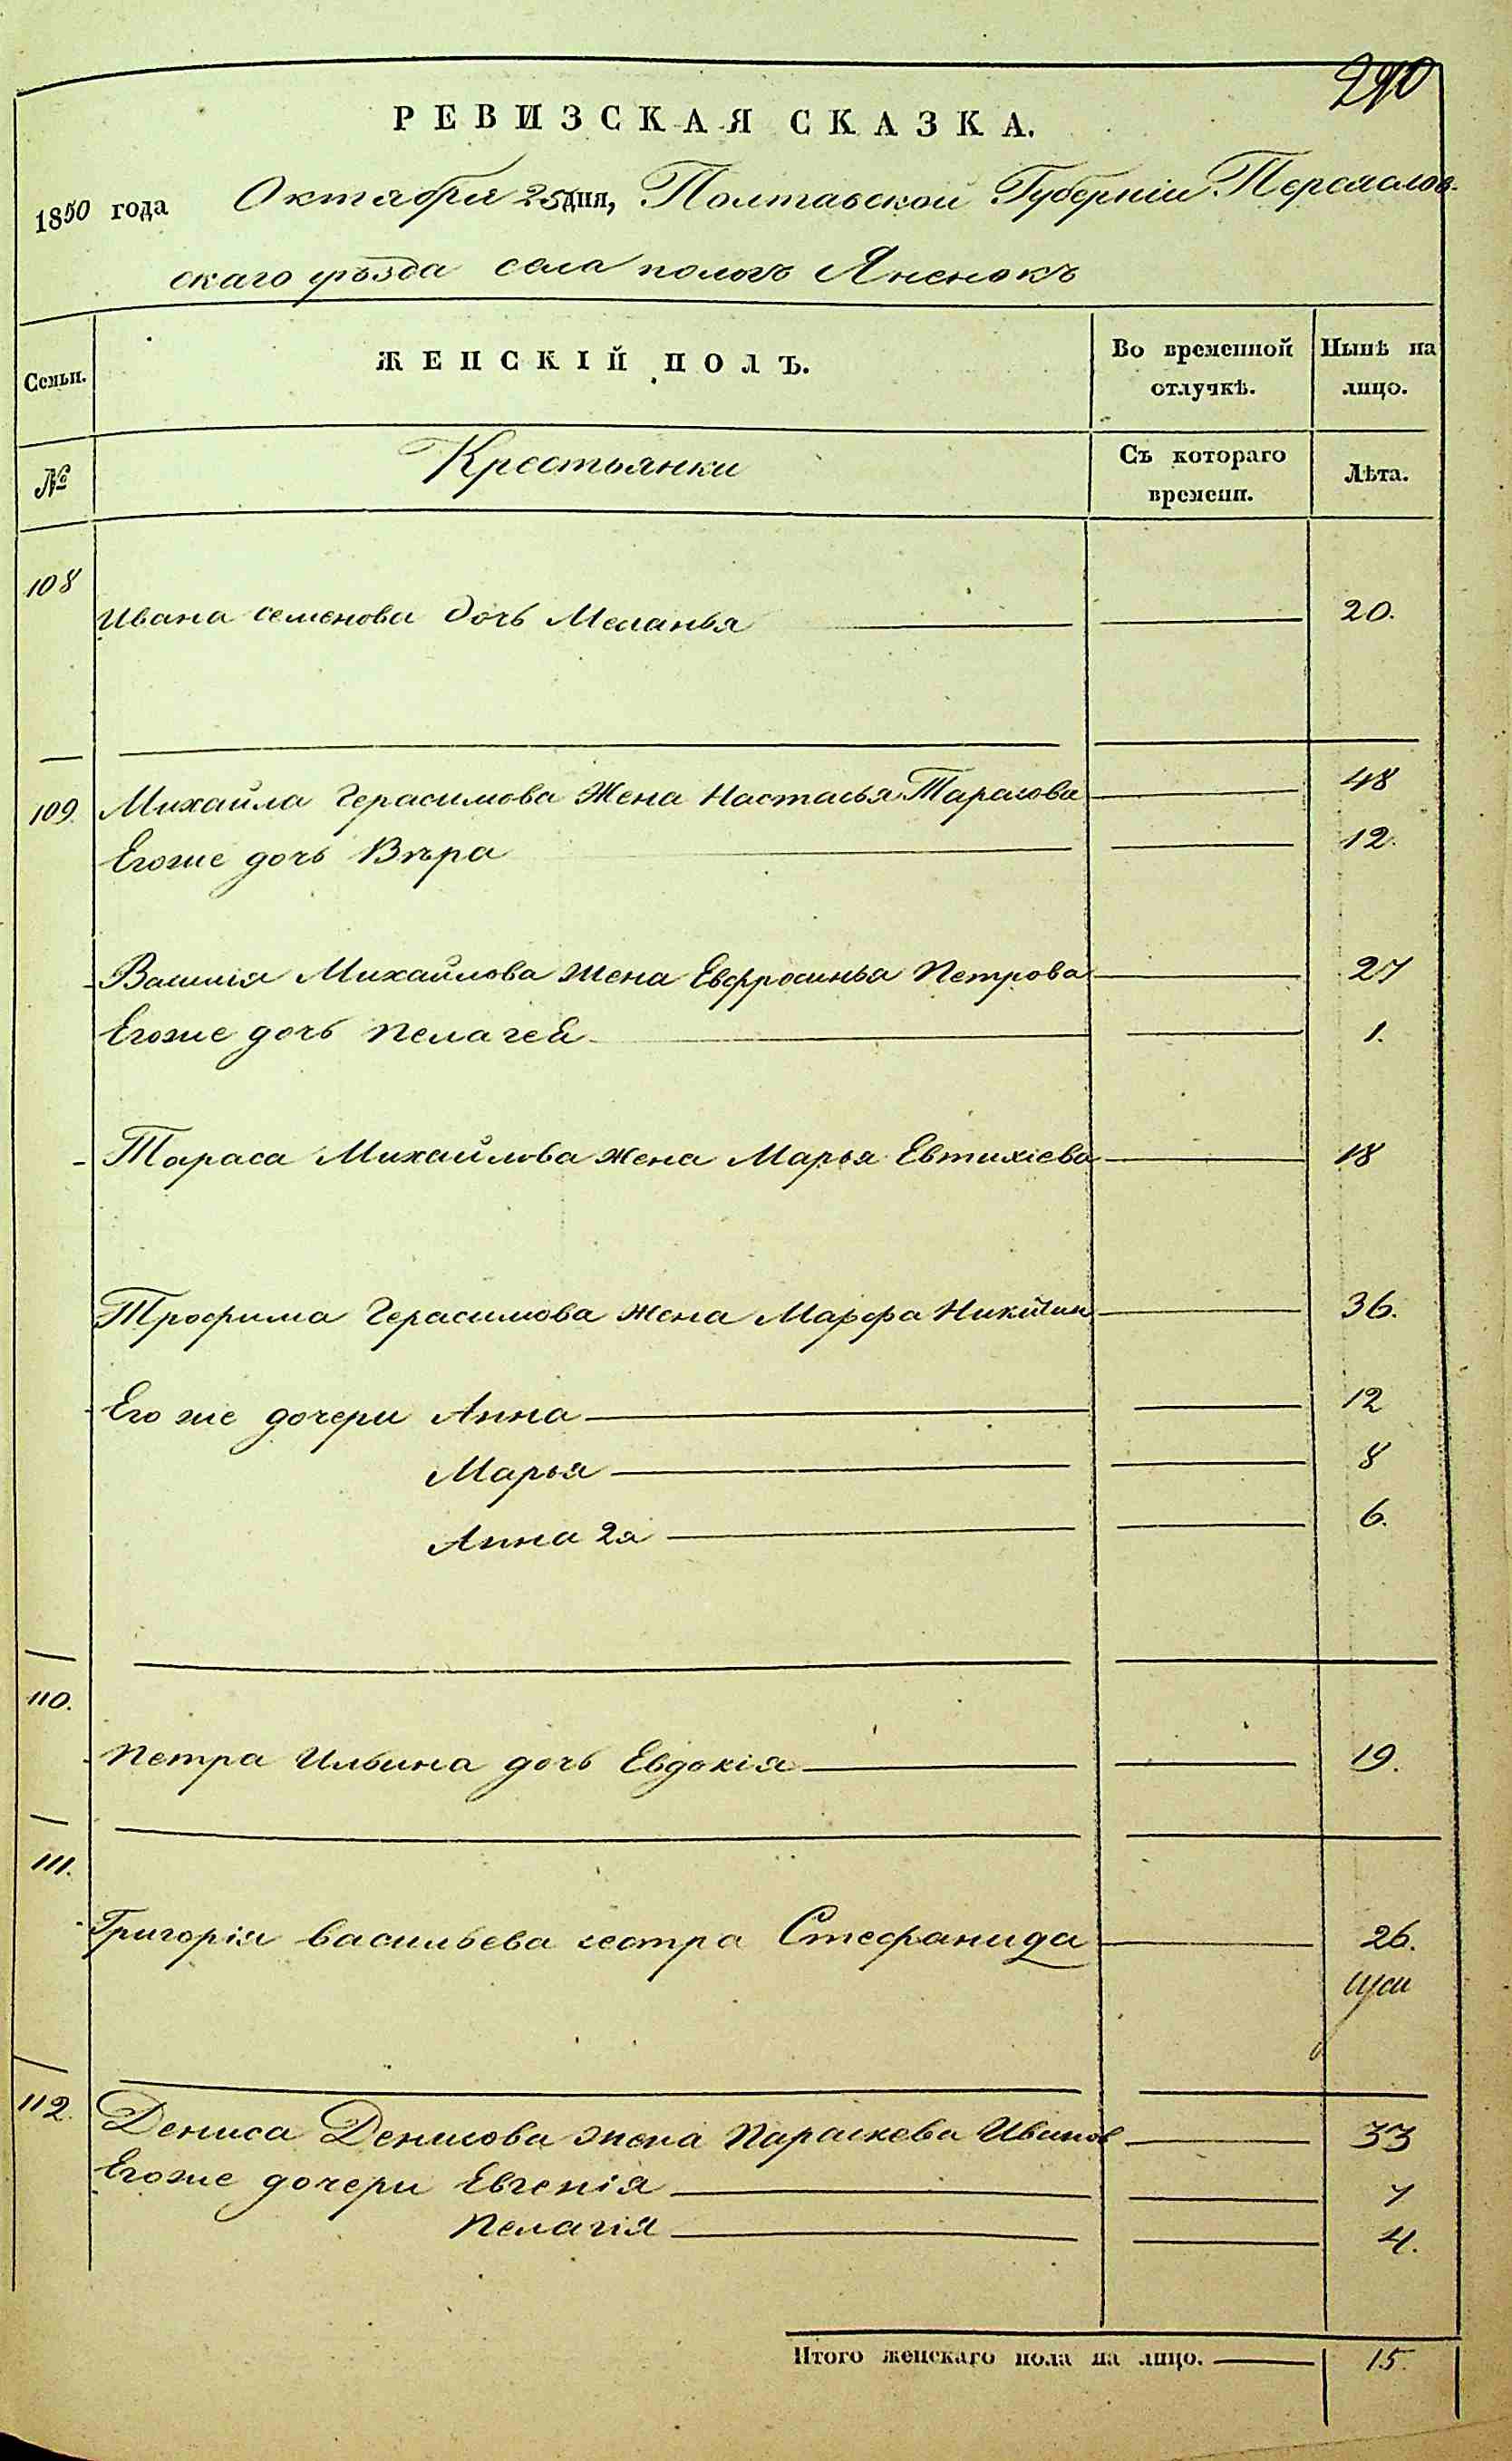 290
РЕВИЗСКАЯ СКАЗКА.
1850 года Октября 25 дня, Полтавской Губерніи Переяслов-
скаго уѣзда села пологъ Яненокъ
Семьи. ЖЕНСКІЙ ПОЛЪ. Во временной отлучкѣ. Нынѣ на лицо.
№ Крестьянки Съ котораго времени. Лѣта.
108
Ивана Семенова дочь Меланья 20.
109. Михайла Герасимова Жена Настасья Тарасова 48
Егоже дочь Вѣра 12.
Василія Михайлова жена Евфросинья Петрова 27
Егоже дочь Пелагея 1.
Тараса Михайлова жена Марья Евтихіева 18
Трофима Герасимова жена Марфа Никитин 36.
Его же дочери Анна 12
Марья 8
Анна 2я 6.
110.
Петра Ильина дочь Евдокія 19.
111.
Григорія Васильева сестра Стефанида 26.
112. Дениса Денисова жена Параскева Иванов 33
Егоже дочери Евгенія 7
Пелагія 4.
Итого женскаго пола на лицо. 15.